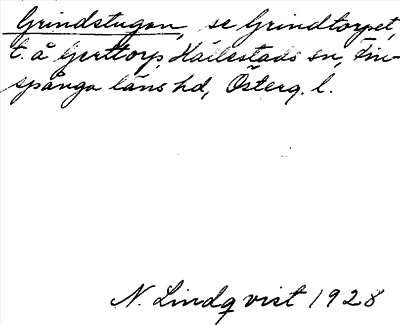 Grindstugan, se Grindtorpet,
t. å Gruttorp, Hällestads sn, Fin-
spånga läns hd, Österg. l.
N. Lindqvist 1928